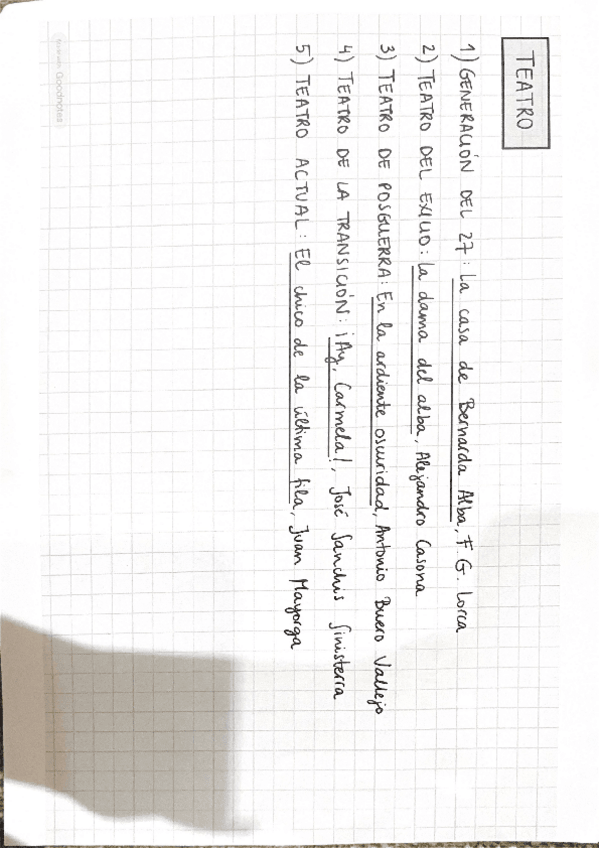 TEATRO
1) GENERACIÓN DEL 27: La casa de Bernarda Alba, F. G. Lorca
2) TEATRO DEL EXILIO: La dama del alba, Alejandro Casona
3) TEATRO DE POSGUERRA: En la ardiente oscuridad, Antonio Buero Vallejo
4) TEATRO DE LA TRANSICIÓN: ¡Ay, Carmela!, José Sanchis Sinisterra
5) TEATRO ACTUAL: El chico de la última fila, Juan Mayorga
Made with Goodnotes